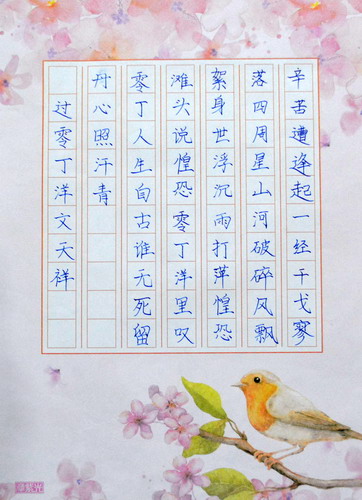 辛苦遭逢起一经干戈寥
落四周星山河破碎风飘
絮身世浮沉雨打萍惶恐
滩头说惶恐零丁洋里叹
零丁人生自古谁无死留
丹心照汗青
过零丁洋文天祥